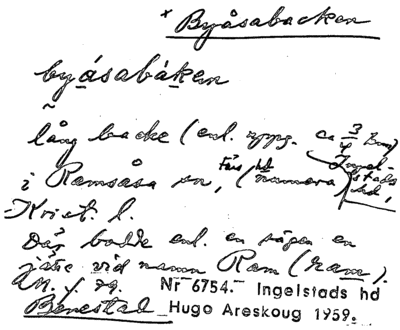 × Byåsabacken
byásabáken
~
lång backe (enl. uppg. ca 3/4 km)
i Ramsåsa sn, Färs hd (numera Ingelstads hd,
Krist. l.
Där bodde enl. en sägen en
jätte vid namn Ram (ram).
Nr 6754. Ingelstads hd
Benestad Hugo Areskoug 1959.